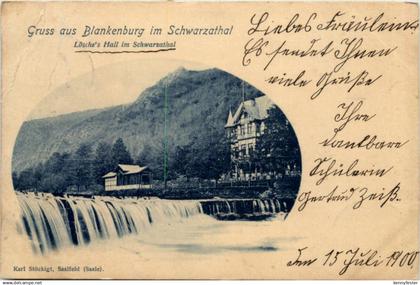 Gruss aus Blankenburg im Schwarzathal
Lösche's Hall im Schwarzathal
Liebes Fräulein
Es sendet Ihnen
viele Grüße
Ihre
dankbare
Schülerin
Gertrud Zeiß.
den 15 Juli 1900.
Karl Stöckigt, Saalfeld (Saale).
kennyfester